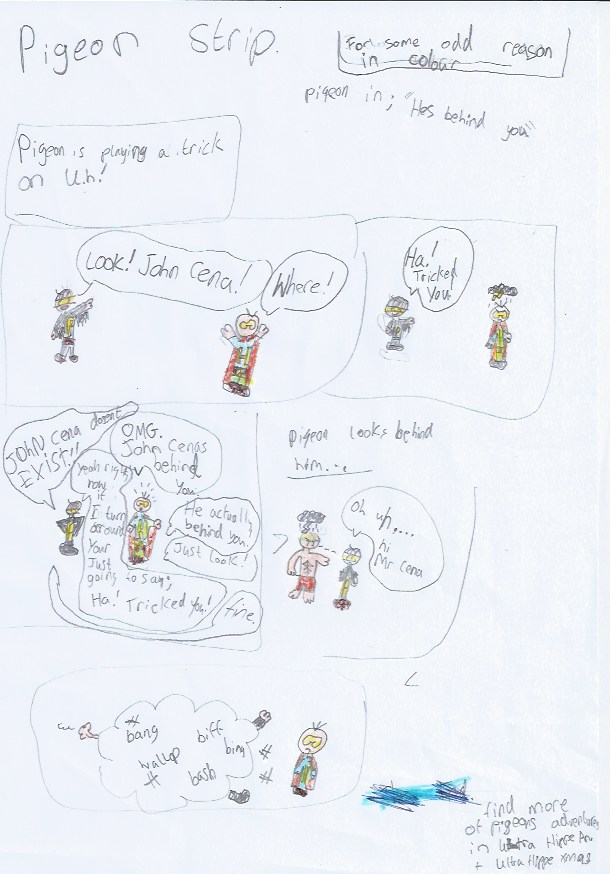 Pigeon Strip.
For some odd reason
in colour
pigeon in; "Hes behind you"
Pigeon is playing a trick
on U.h!
Look! John Cena!
Where!
Ha!
Tricked
You.
JOHN Cena dosent
EXIST!!
OMG.
John Cenas
behind
You.
Yeah right
now
if
I turn
around
Your
Just
going to say;
Ha! Tricked You!
He actually
behind you!
Just Look!
fine.
Pigeon looks behind
him...
Oh uh,...
hi
Mr Cena
#
bang
biff
bing
#
wallop
#
bash
#
find more
of pigeons adventures
in Ultra Hippe
+ Ultra Hippe xmas